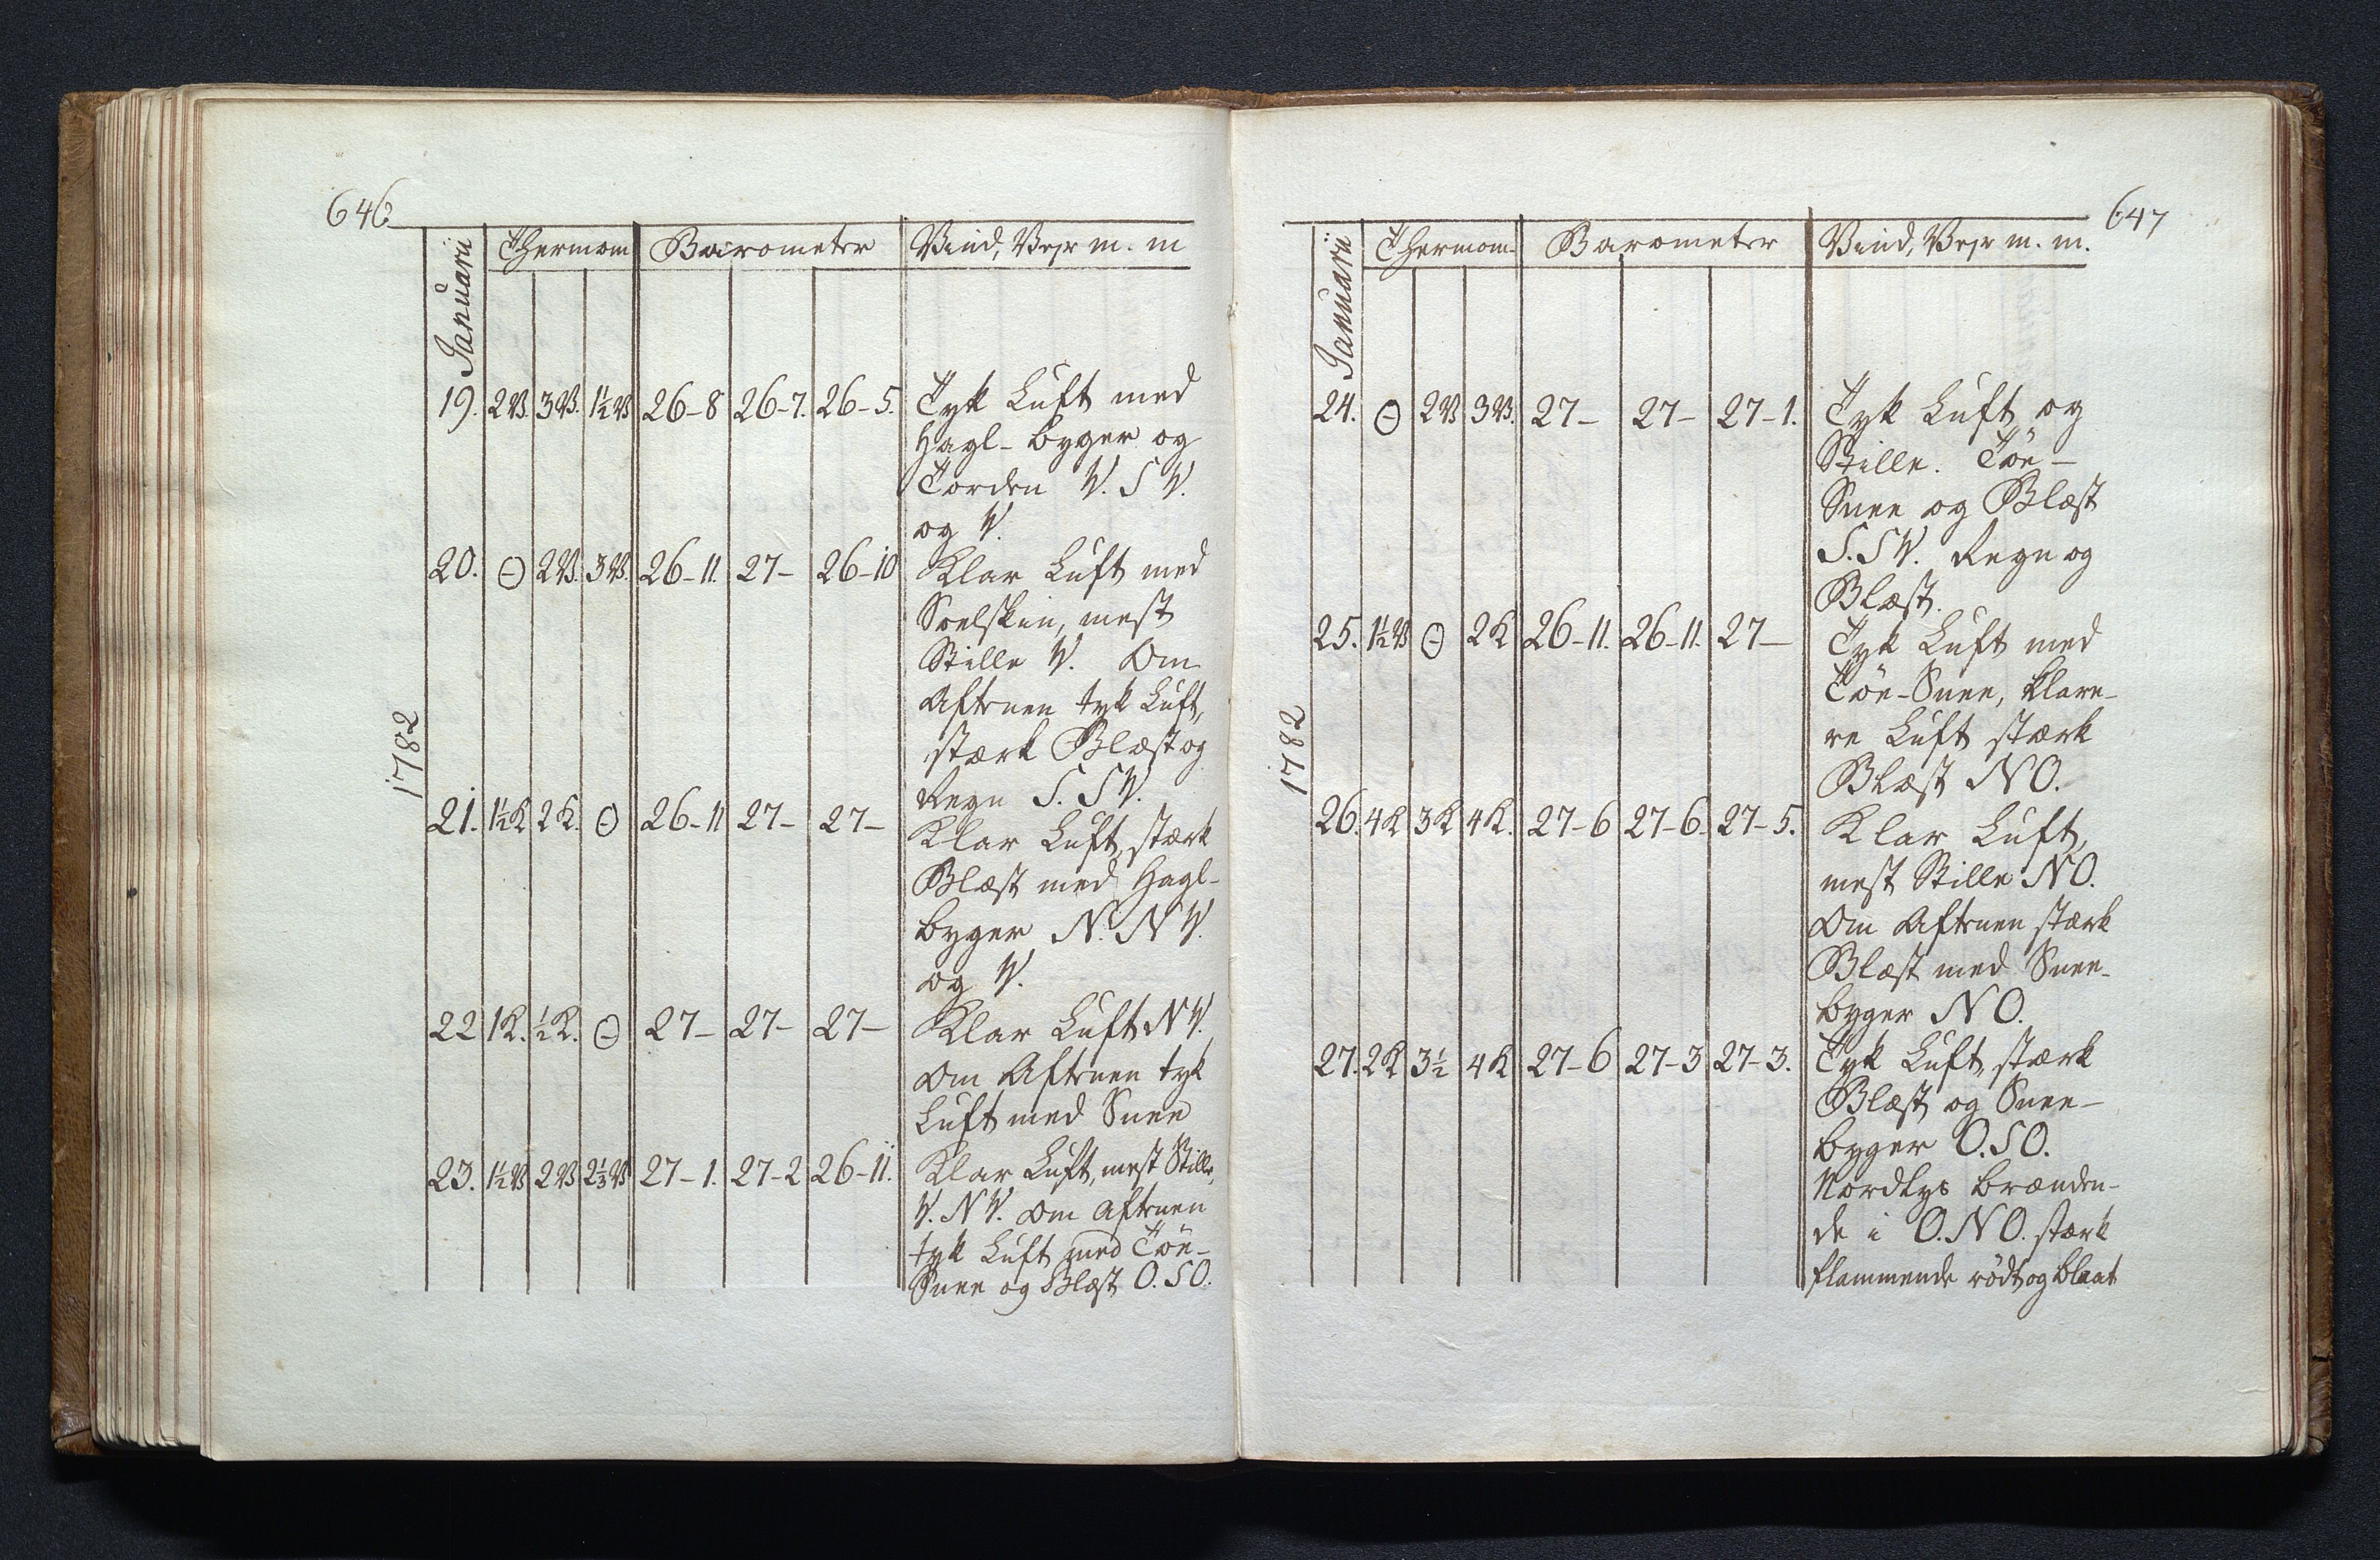 646.
Januarii | Thermom | Barometer | Vind, Vejr m. m
1782
19. | 2V. | 3V. | 1½V | 26-8 | 26-7. | 26-5. | Tyk Luft med
Hagl-byger og
Torden V. SV.
og V.
20. | ⊖ | 2V. | 3V. | 26-11. | 27- | 26-10 | Klar Luft med
Soelskin, mest
Stille V. Om
Aftenen tyk Luft,
stærk Blæst og
Regn S. SV.
21. | 1½K | 2K. | ⊖ | 26-11 | 27- | 27- | Klar Luft, stærk
Blæst med Hagl-
byger N. NV.
og V.
22 | 1K. | ½K. | ⊖ | 27- | 27- | 27- | Klar Luft NV.
Om Aftenen tyk
Luft med Snee
23. | 1½V | 2V | 2⅓V | 27-1. | 27-2 | 26-11. | Klar Luft, mest Stille,
V. NV. Om Aftenen
tyk Luft med Töe-
Snee og Blæst O. SO.
647
Januarii | Thermom. | Barometer | Vind, Vejr m. m.
1782
24. | ⊖ | 2V | 3V. | 27- | 27- | 27-1. | Tyk Luft og
Stille. Töe-
Snee og Blæst
S. SV. Regn og
Blæst.
25. | 1½V | ⊖ | 2K | 26-11. | 26-11. | 27- | Tyk Luft med
Töe-Snee, klare-
re Luft stærk
Blæst NO.
26. | 4K | 3K | 4K. | 27-6 | 27-6. | 27-5. | Klar Luft,
mest Stille NO.
Om Aftenen stærk
Blæst med Snee-
byger NO.
27. | 2K | 3½ | 4K | 27-6 | 27-3 | 27-3. | Tyk Luft, stærk
Blæst og Snee-
byger O. SO.
Nordlys brænden-
de i O. NO. stærk
flammende rödt og blaat